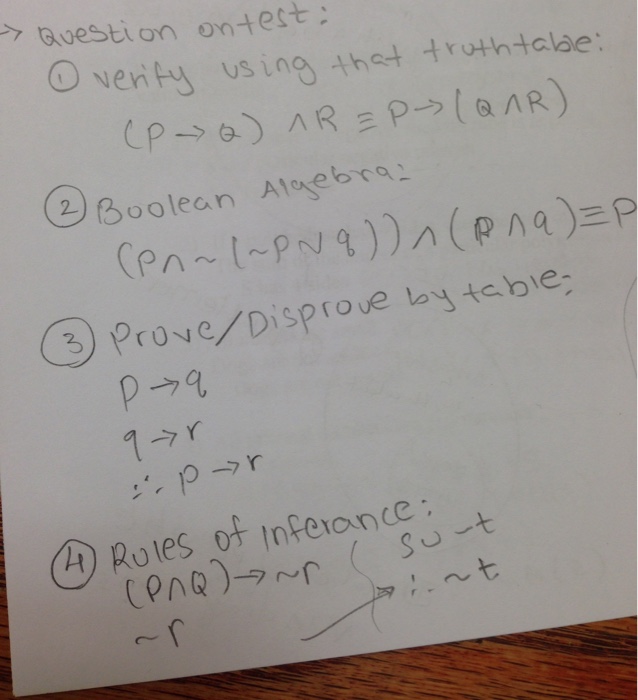 → Question on test:
① verify using that truthtable:
(P → Q) ∧ R ≡ P → (Q ∧ R)
② Boolean Algebra:
(P ∧ ~ (~P ∨ q)) ∧ (P ∧ q) ≡ P
③ Prove/Disprove by table:
p → q
q → r
∴ p → r
④ Rules of inferance:
(P ∧ Q) → ~r
~r
s ∪ ~t
∴ ~t